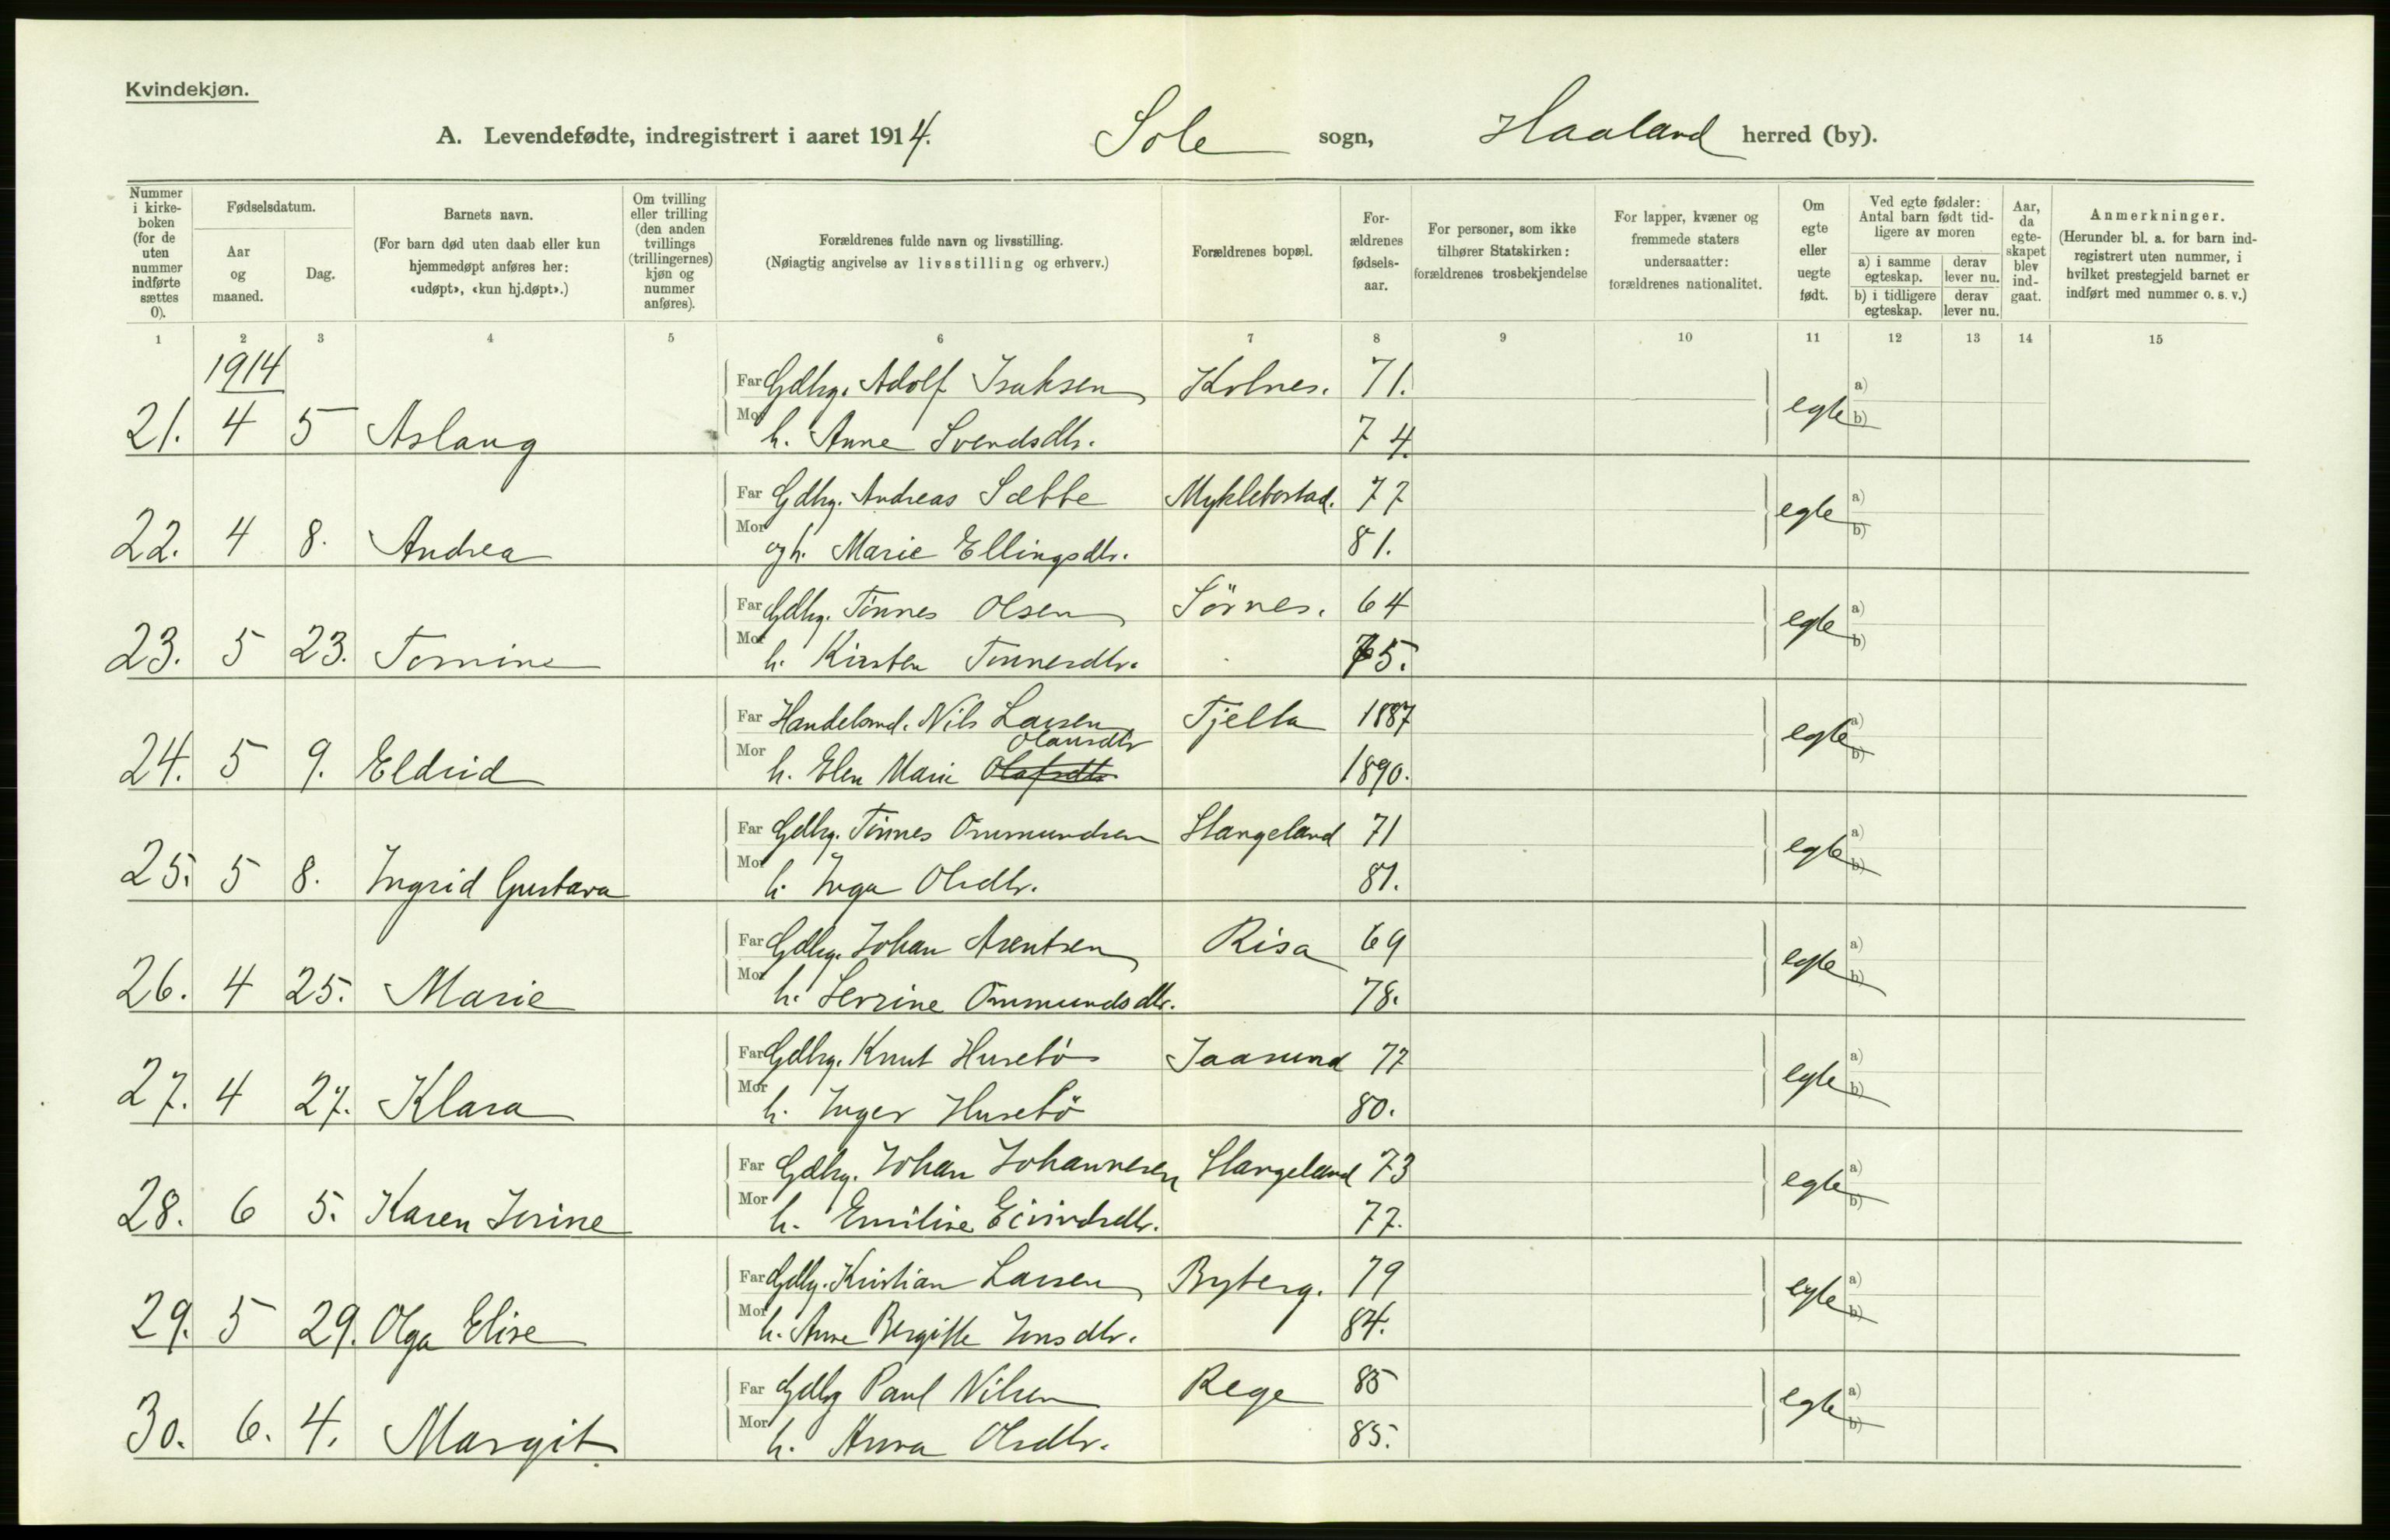 Kvindekjøn.
A. Levendefødte, indregistrert i aaret 1914. Sole sogn, Haaland herred (by).
Nummer i kirke-boken (for de uten nummer indførte sættes 0).
Fødselsdatum.
Aar og maaned.
Dag.
Barnets navn.
(For barn død uten daab eller kun hjemmedøpt anføres her: «udøpt», «kun hj.døpt».)
Om tvilling eller trilling (den anden tvillings (trillingernes) kjøn og nummer anføres).
Forældrenes fulde navn og livsstilling.
(Nøiagtig angivelse av livsstilling og erhverv.)
Forældrenes bopæl.
For-ældrenes fødsels-aar.
For personer, som ikke tilhører Statskirken: forældrenes trosbekjendelse
For lapper, kvæner og fremmede staters undersaatter: forældrenes nationalitet.
Om egte eller uegte født.
Ved egte fødsler: Antal barn født tid-ligere av moren
a) i samme egteskap.
derav lever nu.
b) i tidligere egteskap.
derav lever nu.
Aar, da egte-skapet blev ind-gaat.
Anmerkninger.
(Herunder bl. a. for barn ind-registrert uten nummer, i hvilket prestegjeld barnet er indført med nummer o. s. v.)
1 2 3 4 5 6 7 8 9 10 11 12 13 14 15
1914
Far Gdbrg. Adolf Isaksen Kolnes. 71.
21. 4 5 Aslaug Mor h. Anne Svendsdtr. 74. egte a) b)
Far Gdbrg. Andreas Sæbbe Myklebostad. 77
22. 4 8. Andrea Mor og h. Marie Ellingsdtr. 81. egte a) b)
Far Gdbrg. Tönnes Olsen Sörnes. 64
23. 5 23. Tomine Mor h. Kirsten Tönnesdtr. 75. egte a) b)
Far Handelsmd. Nils Larsen Tjelta 1887
Olausdtr
24. 5 9. Eldrid Mor h. Elen Marie Olafsdtr. 1890. egte a) b)
Far Gdbrg. Tönnes Ommundsen Stangeland 71
25. 5 8. Ingrid Gustava Mor h. Inga Olsdtr. 81. egte a) b)
Far Gdbrg. Johan Arentsen Risa 69
26. 4 25. Marie Mor h. Serine Ommundsdtr. 78. egte a) b)
Far Gdbrg. Knut Husebö Jaasund 77
27. 4 27. Klara Mor h. Inger Husebö 80. egte a) b)
Far Gdbrg. Johan Johannesen Stangeland 73
28. 6 5. Karen Serine Mor h. Emilie Eivindsdtr. 77. egte a) b)
Far Gdbrg. Kristian Larsen Byberg. 79
29. 5 29. Olga Elise Mor h. Anne Bergitte Jonsdtr. 84. egte a) b)
Far Gdbrg Paul Nilsen Rege 85
30. 6. 4. Margit Mor h. Anna Olsdtr. 85. egte a) b)